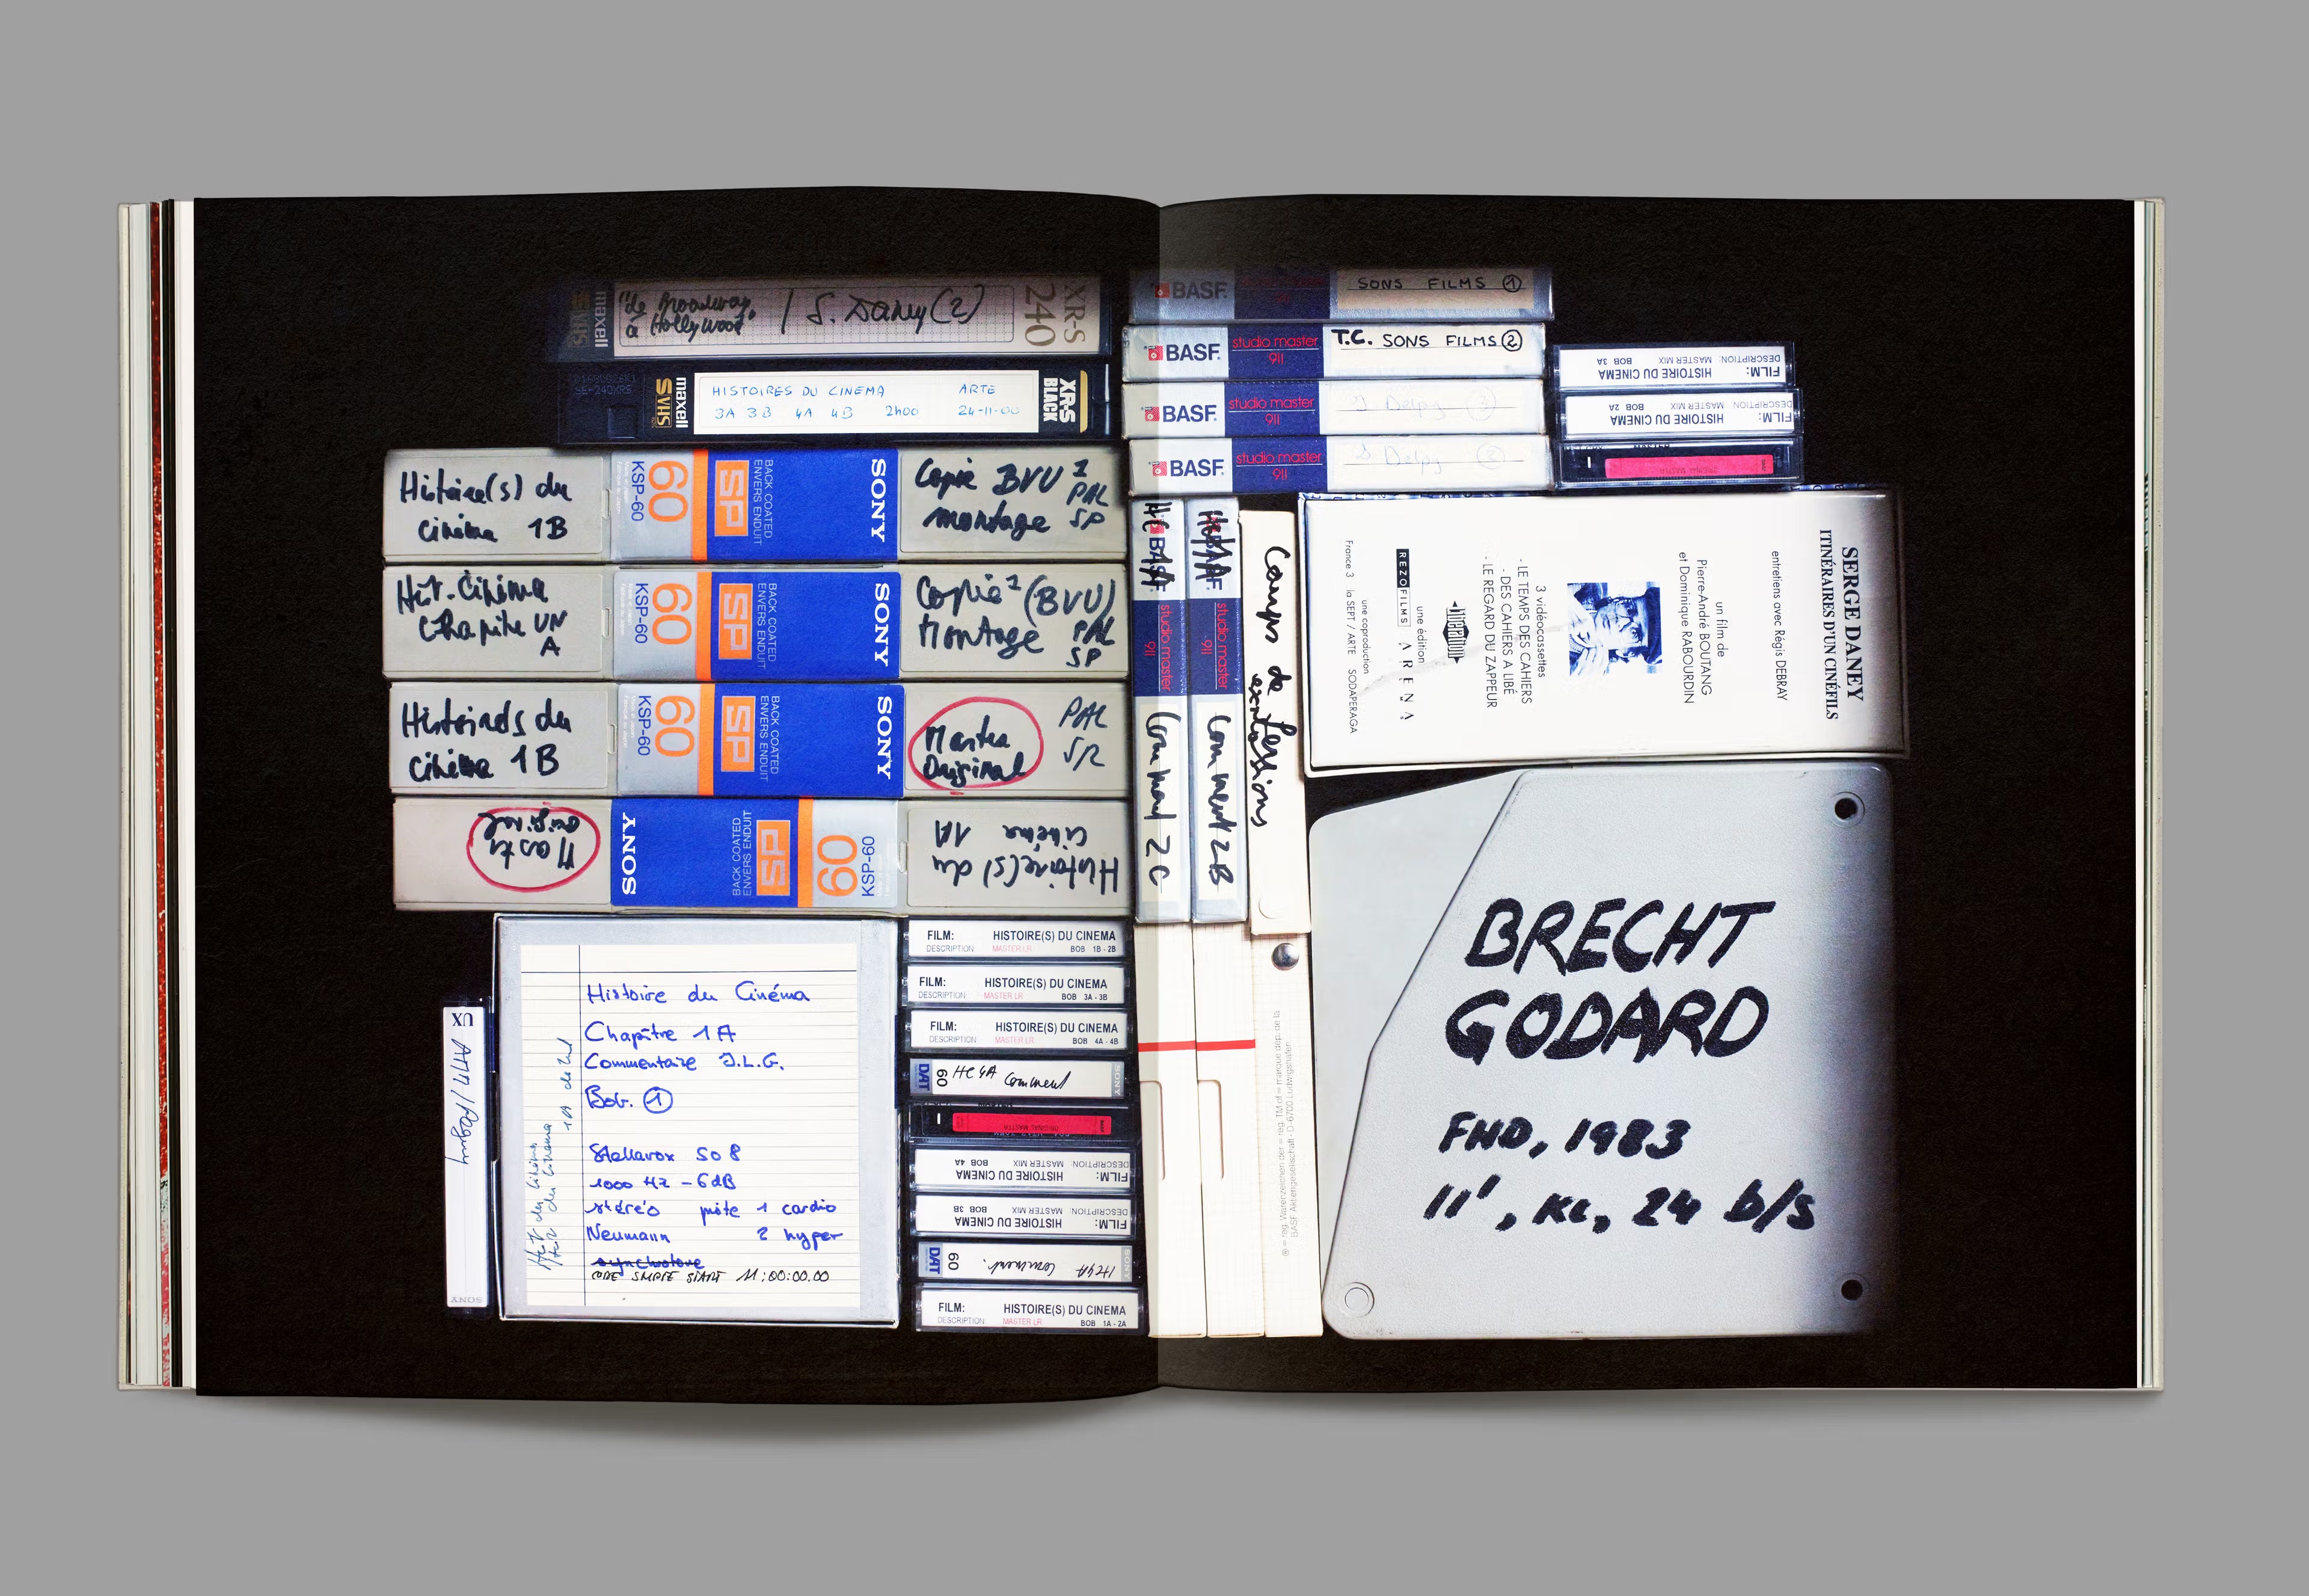 "de Broadway
à Hollywood" / S. Daney (2)
XR-S
240
maxell
SVHS
HISTOIRES DU CINEMA ARTE
3A 3B 4A 4B 2h00 24-11-00
maxell
SVHS
XR-S
BLACK
Histoire(s) du
Cinéma 1B
KSP-60
60
SP
BACK COATED
ENVERS ENDUIT
SONY
Copie BVU 1
montage
PAL
SP
Hist. Cinéma
Chapitre UN
A
KSP-60
60
SP
BACK COATED
ENVERS ENDUIT
SONY
Copie 1 (BVU)
Montage
PAL
SP
Histoires du
Cinéma 1B
KSP-60
60
SP
BACK COATED
ENVERS ENDUIT
SONY
Master
Original
PAL
SR
Histoire(s) du
Cinéma
1A
KSP-60
60
SP
BACK COATED
ENVERS ENDUIT
SONY
Master
original
UX
SONY
Histoire du Cinéma
Chapître 1A
Commentaire J.L.G.
Bob. 1
Stellavox SO8
1000 Hz -6dB
stéréo piste 1 cardio
Neumann 2 hyper
CODE SMPTE START 11:00:00.00
FILM: HISTOIRE(S) DU CINEMA
DESCRIPTION MASTER LR BOB 1B - 2B
FILM: HISTOIRE(S) DU CINEMA
DESCRIPTION MASTER LR BOB 3A - 3B
FILM: HISTOIRE(S) DU CINEMA
DESCRIPTION MASTER LR BOB 4A - 4B
DAT 60 HC4A Comment SONY
FILM: HISTOIRE DU CINEMA
DESCRIPTION: MASTER MIX BOB 4A
FILM: HISTOIRE DU CINEMA
DESCRIPTION: MASTER MIX BOB 3B
DAT 60 HC4A Comment SONY
FILM: HISTOIRE(S) DU CINEMA
DESCRIPTION: MASTER LR BOB 1A - 2A
BASF SONS FILMS 1
BASF studio master 911 T.C. SONS FILMS 2
BASF studio master 911 J Delpy 3
BASF studio master 911 J Delpy 2
FILM: HISTOIRE DU CINEMA
DESCRIPTION: MASTER MIX BOB 3A
FILM: HISTOIRE DU CINEMA
DESCRIPTION MASTER MIX BOB 2A
HC BASF studio master 911 Comment 2C
studio master 911 Comment 2B
Camps de
SERGE DANEY
ITINÉRAIRES D'UN CINÉFILS
entretiens avec Régis DEBRAY
un film de
Pierre-André BOUTANG
et Dominique RABOURDIN
3 vidéocassettes
- LE TEMPS DES CAHIERS
- DES CAHIERS A LIBÉ
- LE REGARD DU ZAPPEUR
Libération
une édition
REZO FILMS ARENA
une coproduction
France 3 la SEPT / ARTE SODAPERAGA
BRECHT
GODARD
FHD, 1983
11', KL, 24 b/s